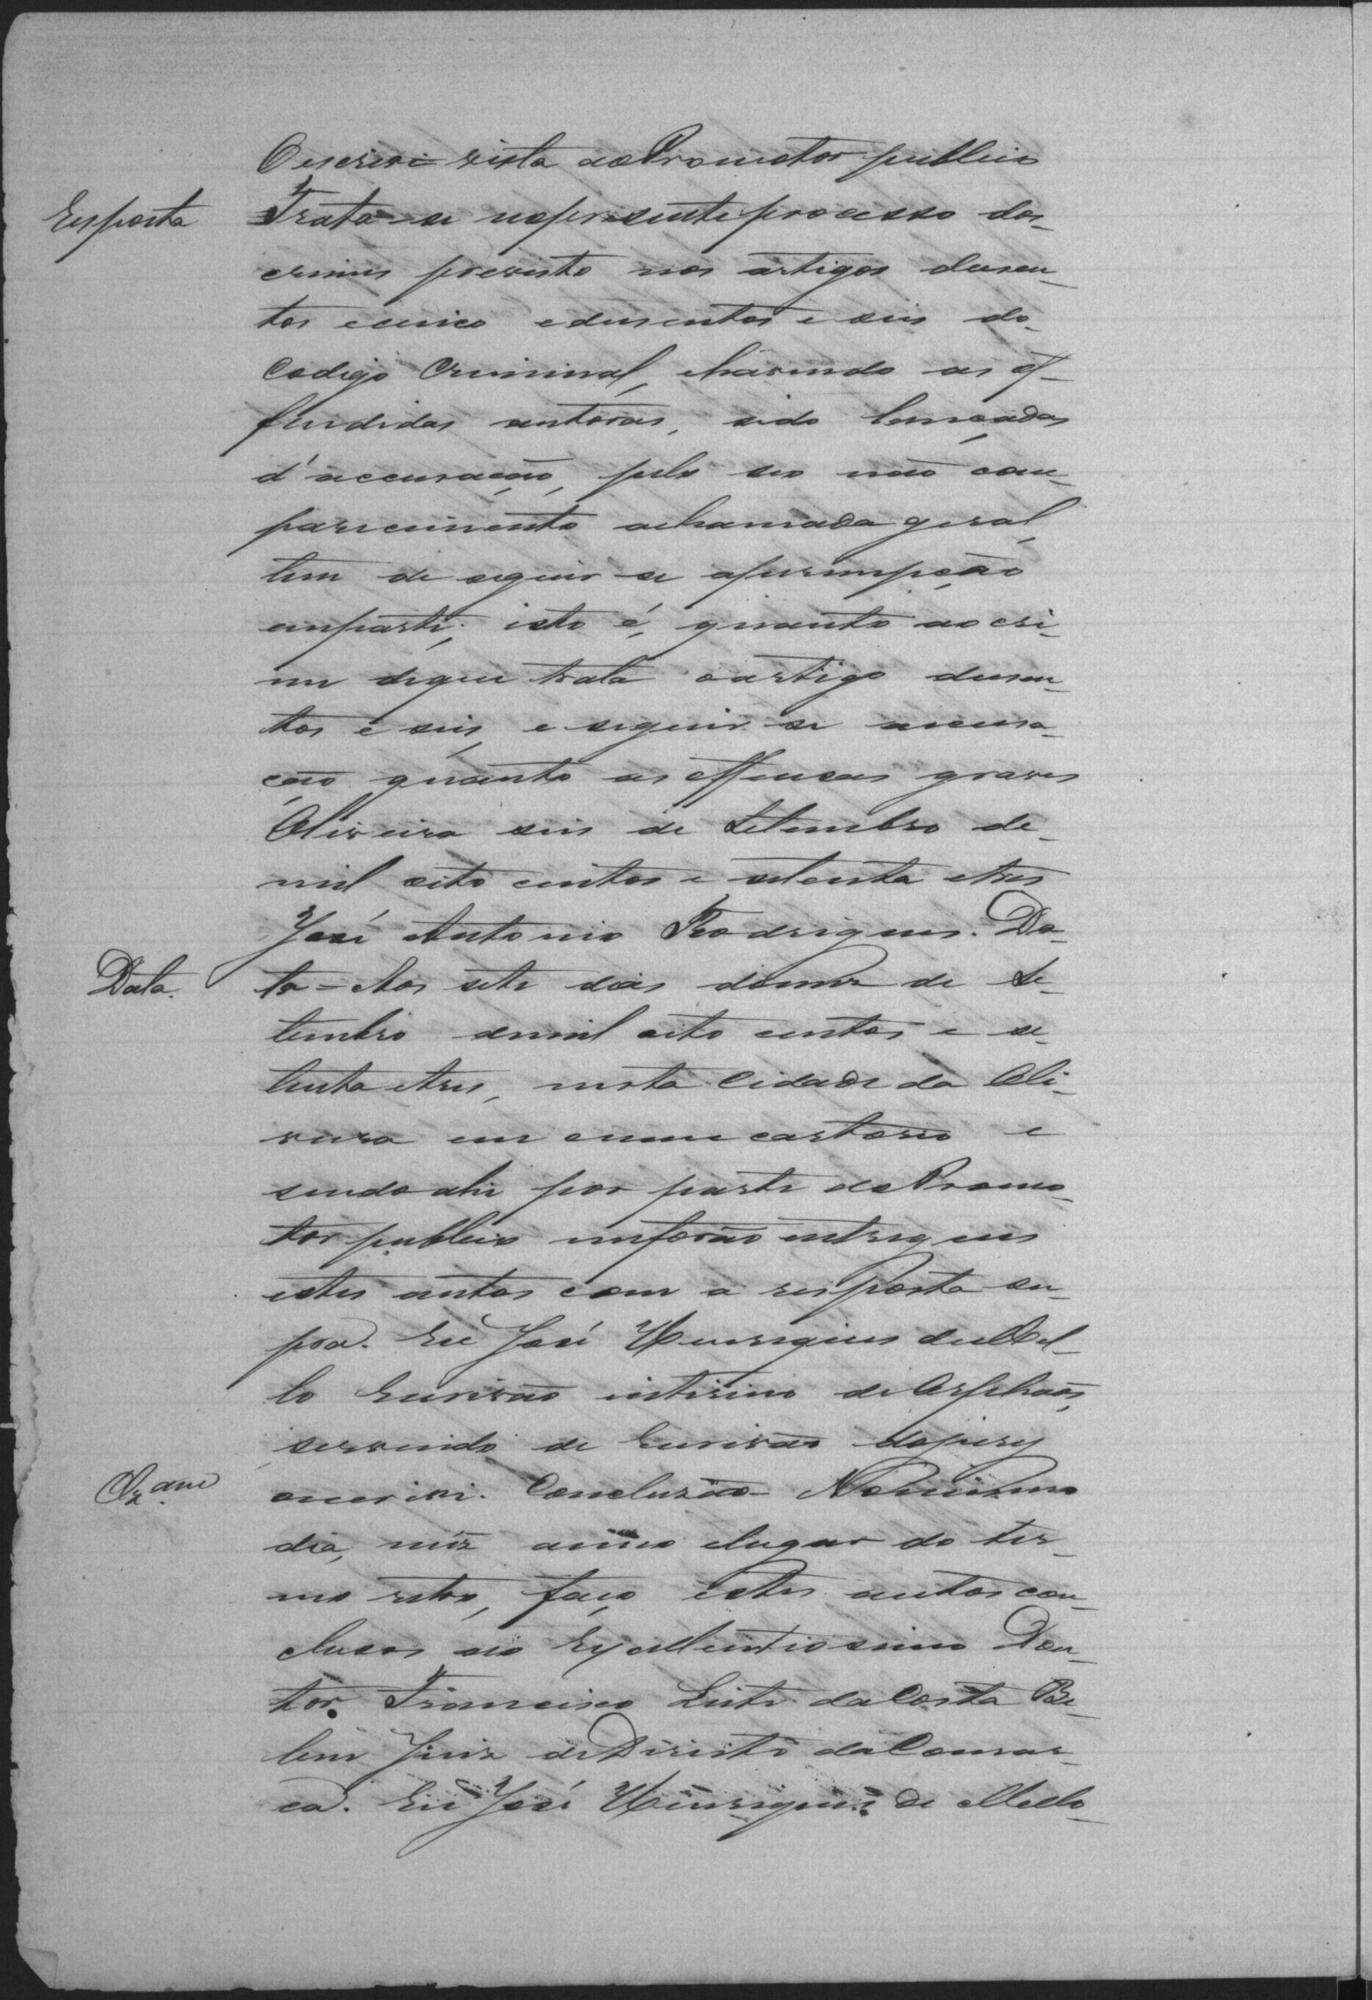 O escrevi = vista ao Promotor publico
Resposta
Trata-se no presente processo dos
crimes previsto nos artigos dusen-
tos e cinco e dusentos e seis do
Codigo Criminal, e havendo as of-
fendidas autoras, sido lançadas
d'accusação, pelo seo não com-
parecimento a chamada geral,
tem de seguir-se a perempção
em parte; isto é, quanto ao cri-
me de que trata o artigo dusen-
tos e seis, e seguir-se accusa-
ção quanto as offensas graves
Oliveira seis de Setembro de
mil oito centos e setenta e tres
José Antonio Rodrigues. Da-
Data.
ta = Aos sete dias do mez de Se-
tembro de mil oito centos e se-
tenta e tres, nesta Cidade da Oli-
veira em o meu cartorio e
sendo ahi por parte do Promo-
tor publico me forão entregues
estes autos com a resposta su-
pra. Eu José Henriques de Mel-
lo Escrivão interino de Orphãos,
servindo de Escrivão do jury
Clzam
o escrivi. Conclusão = No mesmo
dia, mez anno e lugar do ter-
mo retro, faço estes autos con-
clusos ao Excellentissimo Dou-
tor. Francisco Leite da Costa Be-
lem Juiz de Direito da Comar-
ca. Eu José Henriques de Mello